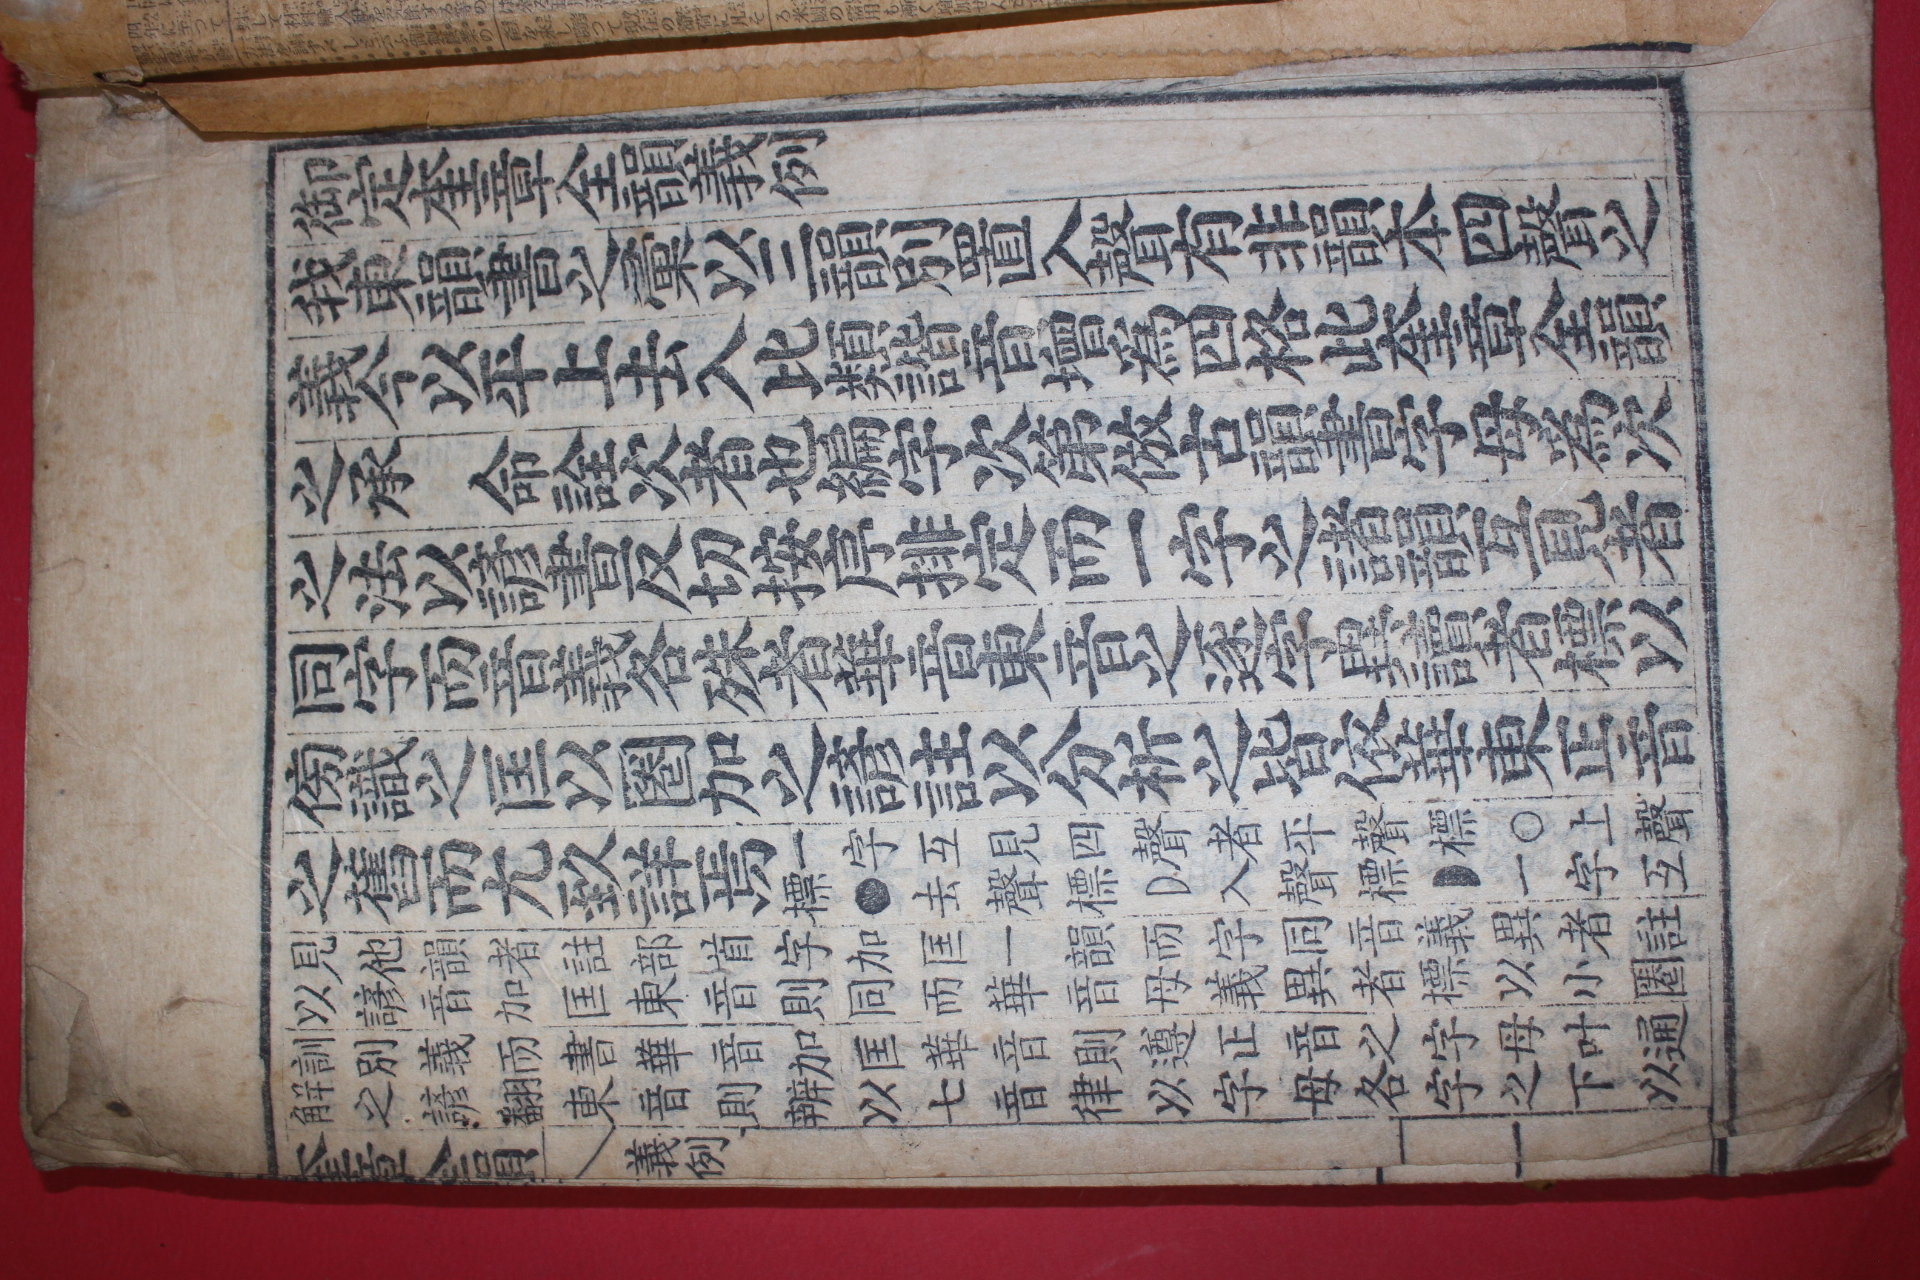 御定奎章全韻義例
我東韻書之彙以三韻別置入聲有非韻本四聲之
義今以平上去入比類諧音增爲四格此奎章全韻
之承　命詮次者也編字次第倣古韻書字母爲次
之法以諺書反切按序排定而一字之諸韻互見者
同字而音義各殊者華音東音之逐字異讀者標以
傍識之匡以圈加之諺註以分析之皆依華東正音
之舊而尤致詳焉
一字互見四聲者平聲標○上聲
標●去聲標D入聲標◗一字互
見他韻者註部首字加匡一韻而字同音義異者註
以諺音加匡東音則同而華音母義異者標以小圈
訓別義而書華音加匡華音則遵正音之字母叶通
解之諺翻東音則辨以七音律以字母各字之下以
奎章全韻
義例
一